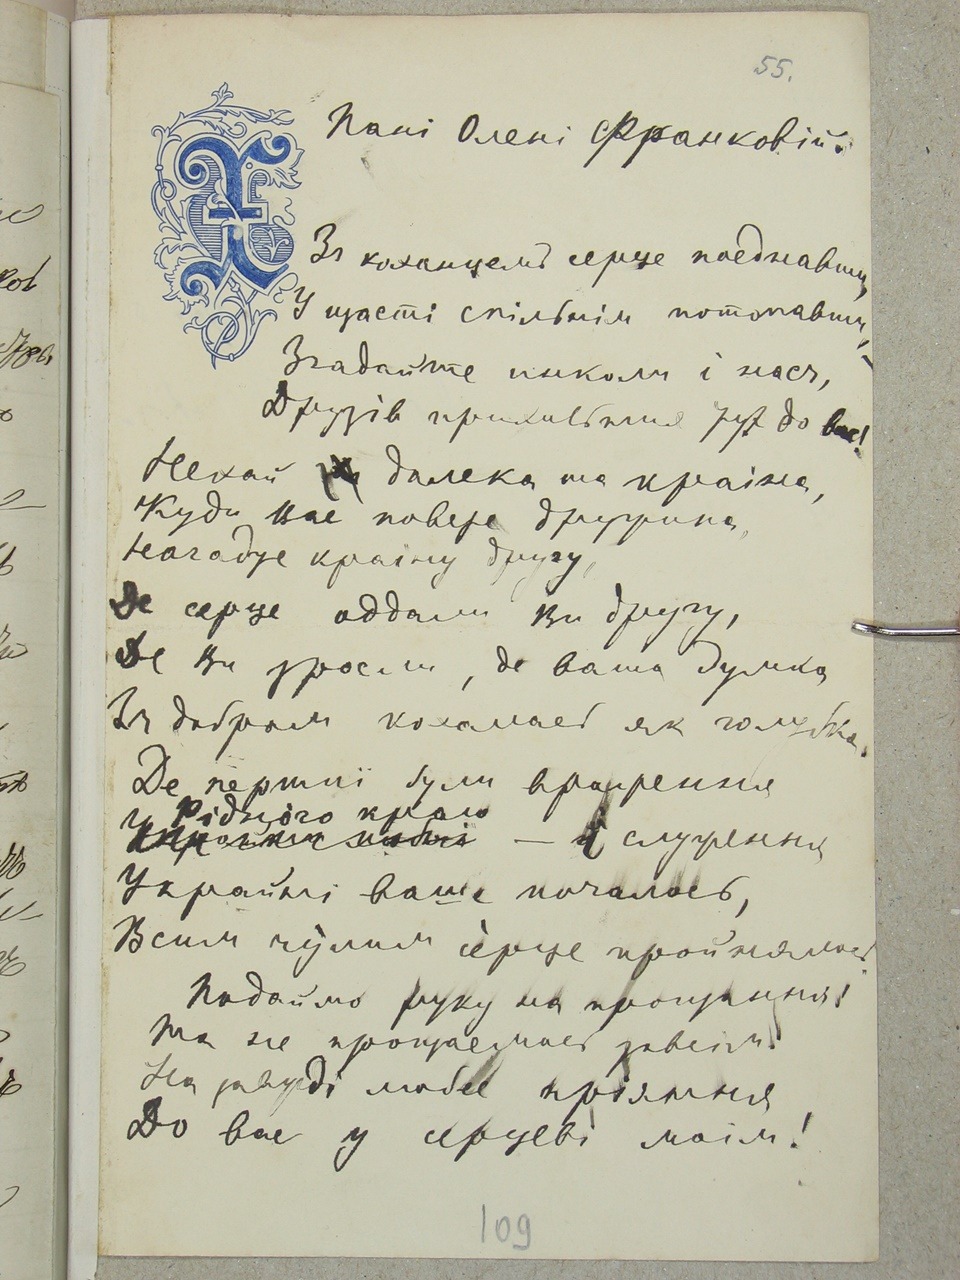 55.
Пані Олені Франковій.
Зъ коханцемъ серце поеднавши,
У щасті спільнім потопавши,
Згадайте инколи і насъ,
Друзів прихильних тут до вас!
Нехай далека та країна,
Куди вас повезе дружина,
Нагадує країну другу,
Де серце оддали Ви другу,
Де Ви зросли, де ваша думка
Зъ добром кохалась як голубка,
Де першиї були враження
У рідного краю
— й служення
Украйні ваше почалось,
Всим чулим серце пройнялось.
Подаймо руку на прощання!
Та не прощаємось зовсім:
На завжді любее пріяння
До вас у серцеві моїм!
109